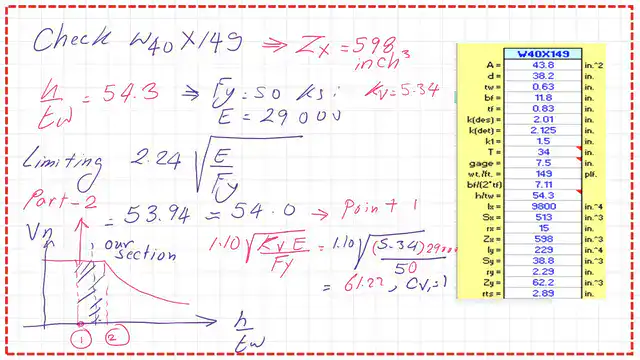 Check W40X149 ⇒ Zx = 598 inch³
h/tw = 54.3 ⇒ Fy = 50 ksi Kv = 5.34
E = 29000
Limiting 2.24 √(E/Fy)
Part-2 = 53.94 ≈ 54.0 → Point 1
Vn
our section
1.10 √(Kv E/Fy) = 1.10 √((5.34) 29000/50)
= 61.22, Cv1 = 1
1 2
h/tw
W40X149
A = 43.8 in.^2
d = 38.2 in.
tw = 0.63 in.
bf = 11.8 in.
tf = 0.83 in.
k(des) = 2.01 in.
k(det) = 2.125 in.
k1 = 1.5 in.
T = 34 in.
gage = 7.5 in.
wt./ft. = 149 plf.
bf/(2*tf) = 7.11
h/tw = 54.3
Ix = 9800 in.^4
Sx = 513 in.^3
rx = 15 in.
Zx = 598 in.^3
Iy = 229 in.^4
Sy = 38.8 in.^3
ry = 2.29 in.
Zy = 62.2 in.^3
rts = 2.89 in.